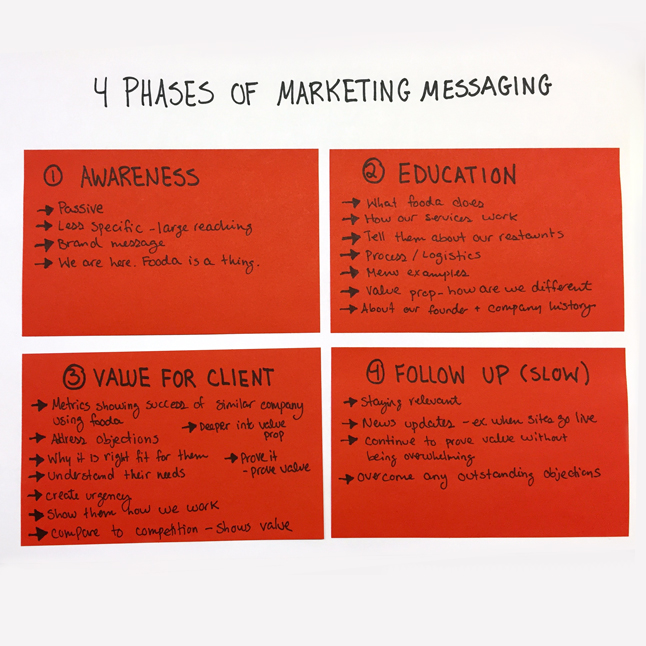 4 PHASES OF MARKETING MESSAGING
① AWARENESS
→ Passive
→ Less specific - large reaching
→ Brand message
→ We are here. Fooda is a thing.
② EDUCATION
→ What fooda does
→ How our services work
→ Tell them about our restaunts
→ Process / Logistics
→ Menu examples
→ Value prop - how are we different
→ About our founder + company history
③ VALUE FOR CLIENT
→ Metrics showing success of similar company
using fooda
→ Deeper into value
prop
→ Address objections
→ Why it is right fit for them
→ Prove it
- prove value
→ Understand their needs
→ create urgency
→ Show them how we work
→ compare to competition - shows value
④ FOLLOW UP (SLOW)
→ Staying relevant
→ News updates - ex. when sites go live
→ Continue to prove value without
being overwhelming
→ overcome any outstanding objections